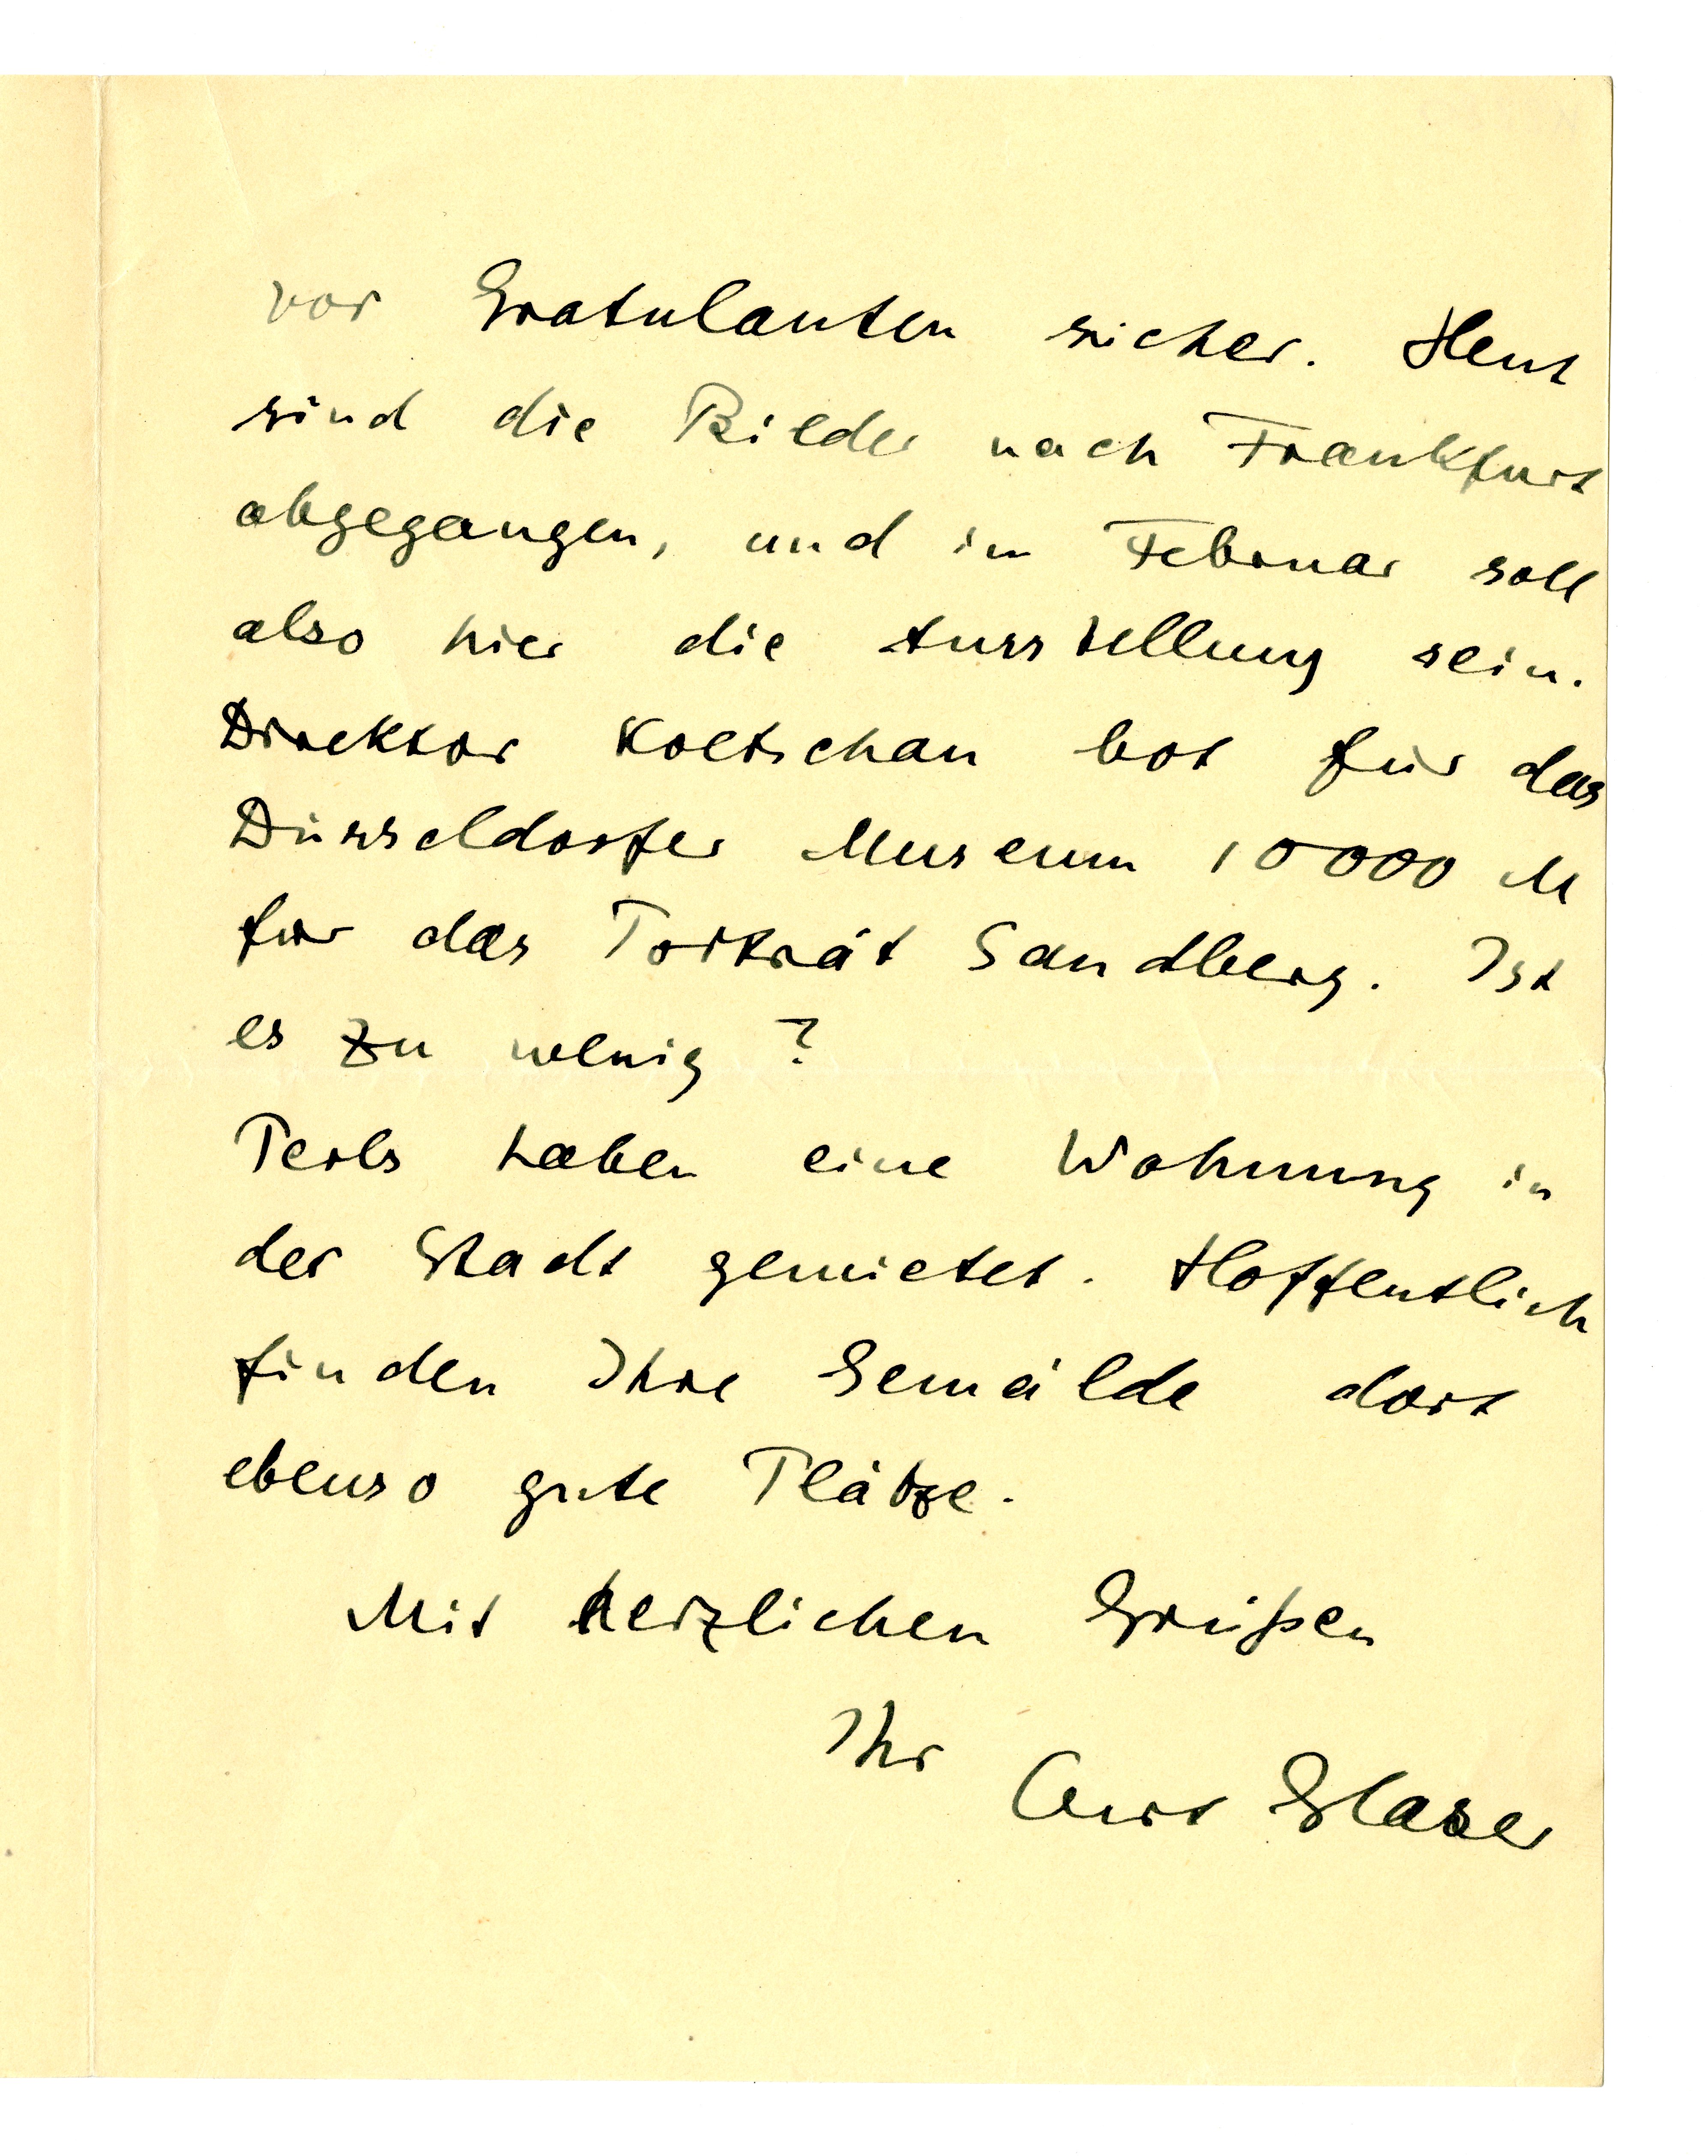 vor Gratulanten sicher. Heut
sind die Bilder nach Frankfurt
abgegangen, und im Februar soll
also hier die Ausstellung sein.
Direktor Koetschau bot für das
Düsseldorfer Museum 10000 M
für das Porträt Sandberg. Ist
es zu wenig?
Perls haben eine Wohnung in
der Stadt gemietet. Hoffentlich
finden Ihre Gemälde dort
ebenso gute Plätze.
Mit herzlichen Grüßen
Ihr Curt Glaser